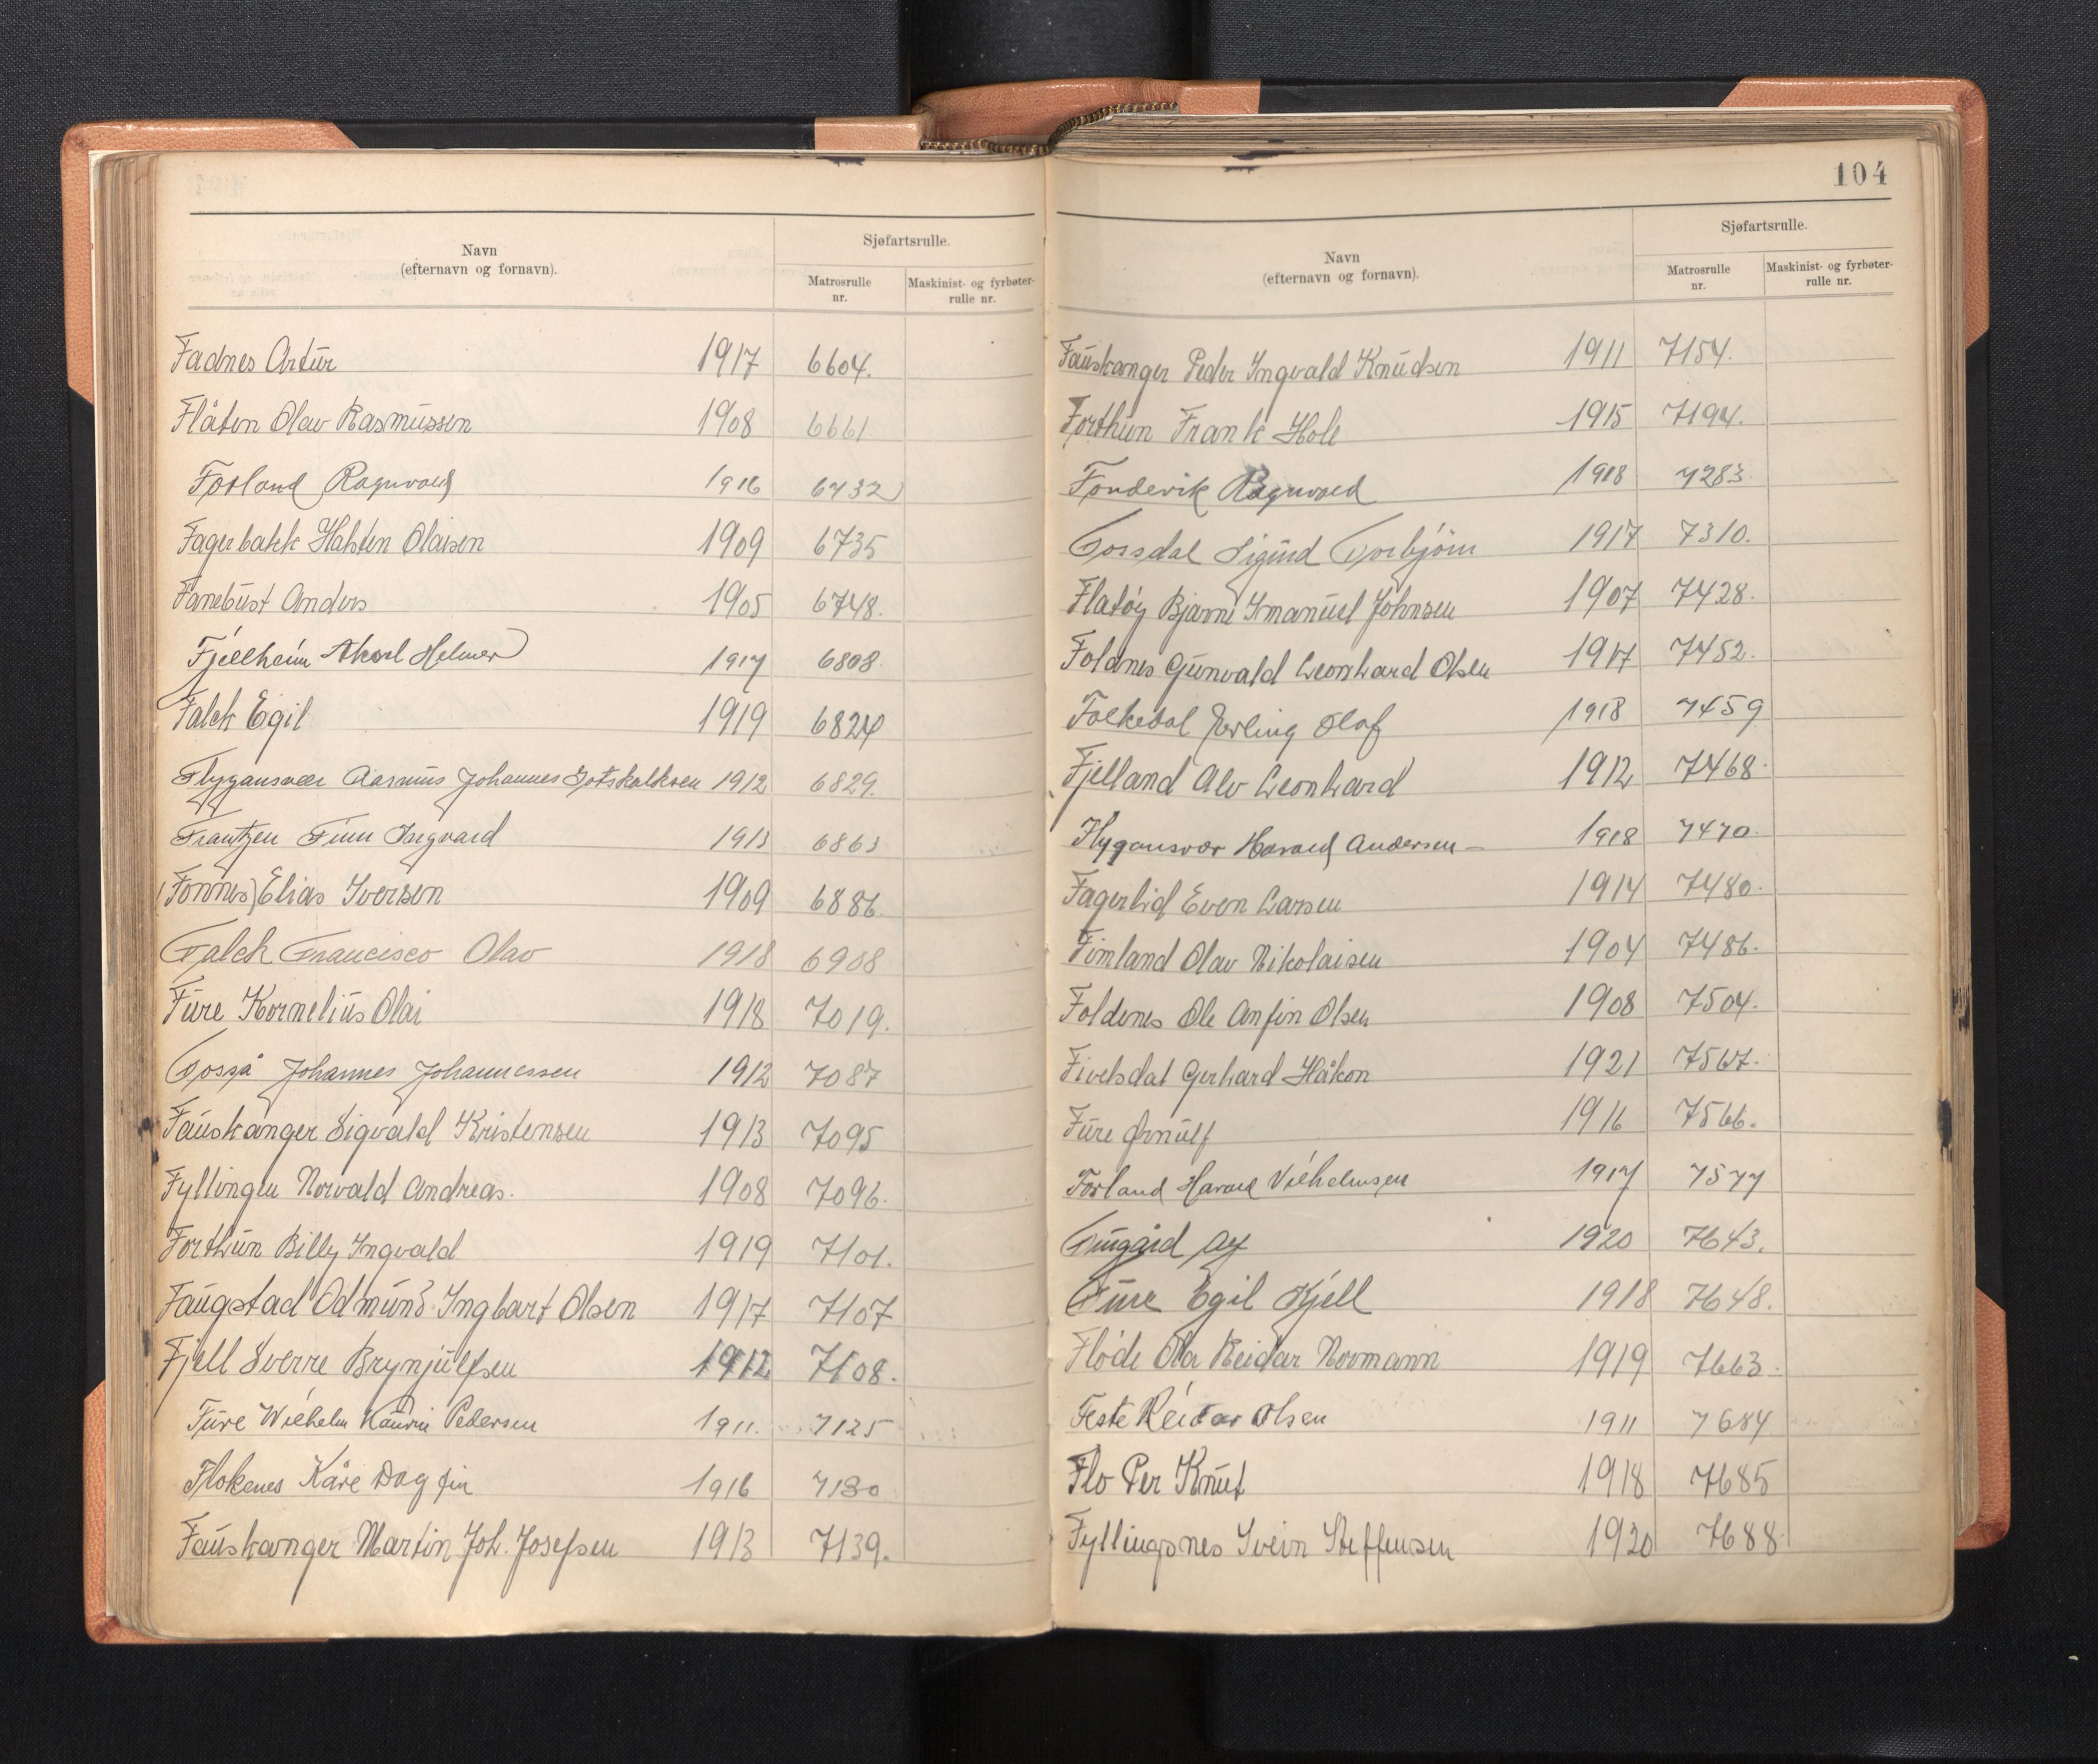 104
Navn
(efternavn og fornavn).
Sjøfartsrulle.
Matrosrulle
nr.
Maskinist- og fyrbøter-
rulle nr.
Fadnes Artur 1917 6604.
Flåten Olav Rasmussen 1908 6661
Forland Ragnvald 1916 6732
Fagerbakk Halsten Olaisen 1909 6735
Fanebust Anders 1905 6748.
Fjellheim Aksel Helmer 1917 6808.
Falck Egil 1919 6824
Flygansvær Rasmus Johannes Gotskalksen 1912 6829.
Frantzen Finn Ingvard 1913 6863
(Fonnes) Elias Iversen 1909 6886.
Falck Francisco Olav 1918 6908
Fure Kornelius Olai 1918 7019.
Fosså Johannes Johannessen 1912 7087
Fauskanger Sigvald Kristensen 1913 7095
Fyllingen Norvald Andreas. 1908 7096.
Forthun Billy Ingvald 1919 7101.
Faugstad Odmund Ingbart Olsen 1917 7107
Fjell Sverre Brynjulfsen 1912 7108.
Fure Wilhelm Kaurin Pedersen 1911. 7125
Flokenes Kåre Dagfin 1916 7130
Fauskanger Martin Joh. Josefsen 1913 7139.
Navn
(efternavn og fornavn).
Sjøfartsrulle.
Matrosrulle
nr.
Maskinist- og fyrbøter-
rulle nr.
Fauskanger Peder Ingvald Knudsen 1911 7154.
Forthun Frank Hole 1915 7194.
Fondevik Ragnvald 1918 7283.
Forsdal Sigurd Torbjörn 1917 7310.
Flatöy Bjarne Imanuel Johnsen 1907 7428.
Foldnes Gunvald Leonhard Olsen 1917 7452.
Folkedal Erling Olaf 1918 7459
Fjelland Alv Leonhard 1912 7468.
Flygansvær Harald Andersen - 1918 7470.
Fagerlid Even Larsen 1914 7480.
Fimland Olav Nikolaisen 1904 7486.
Foldenes Ole Anfin Olsen 1908 7504.
Fivelsdal Gerhard Håkon 1921
Fure Ørnulf 1916 7566.
Forland Harald Vilhelmsen 1917 7577
1920 7643.
Fure Egil Kjell 1918 7648.
Flöde Ola Reidar Normann 1919 7663.
Feste Reidar Olsen 1911 7684
Flo Per Knut 1918 7685
Fyllingsnes Svein Steffensen 1920 7688